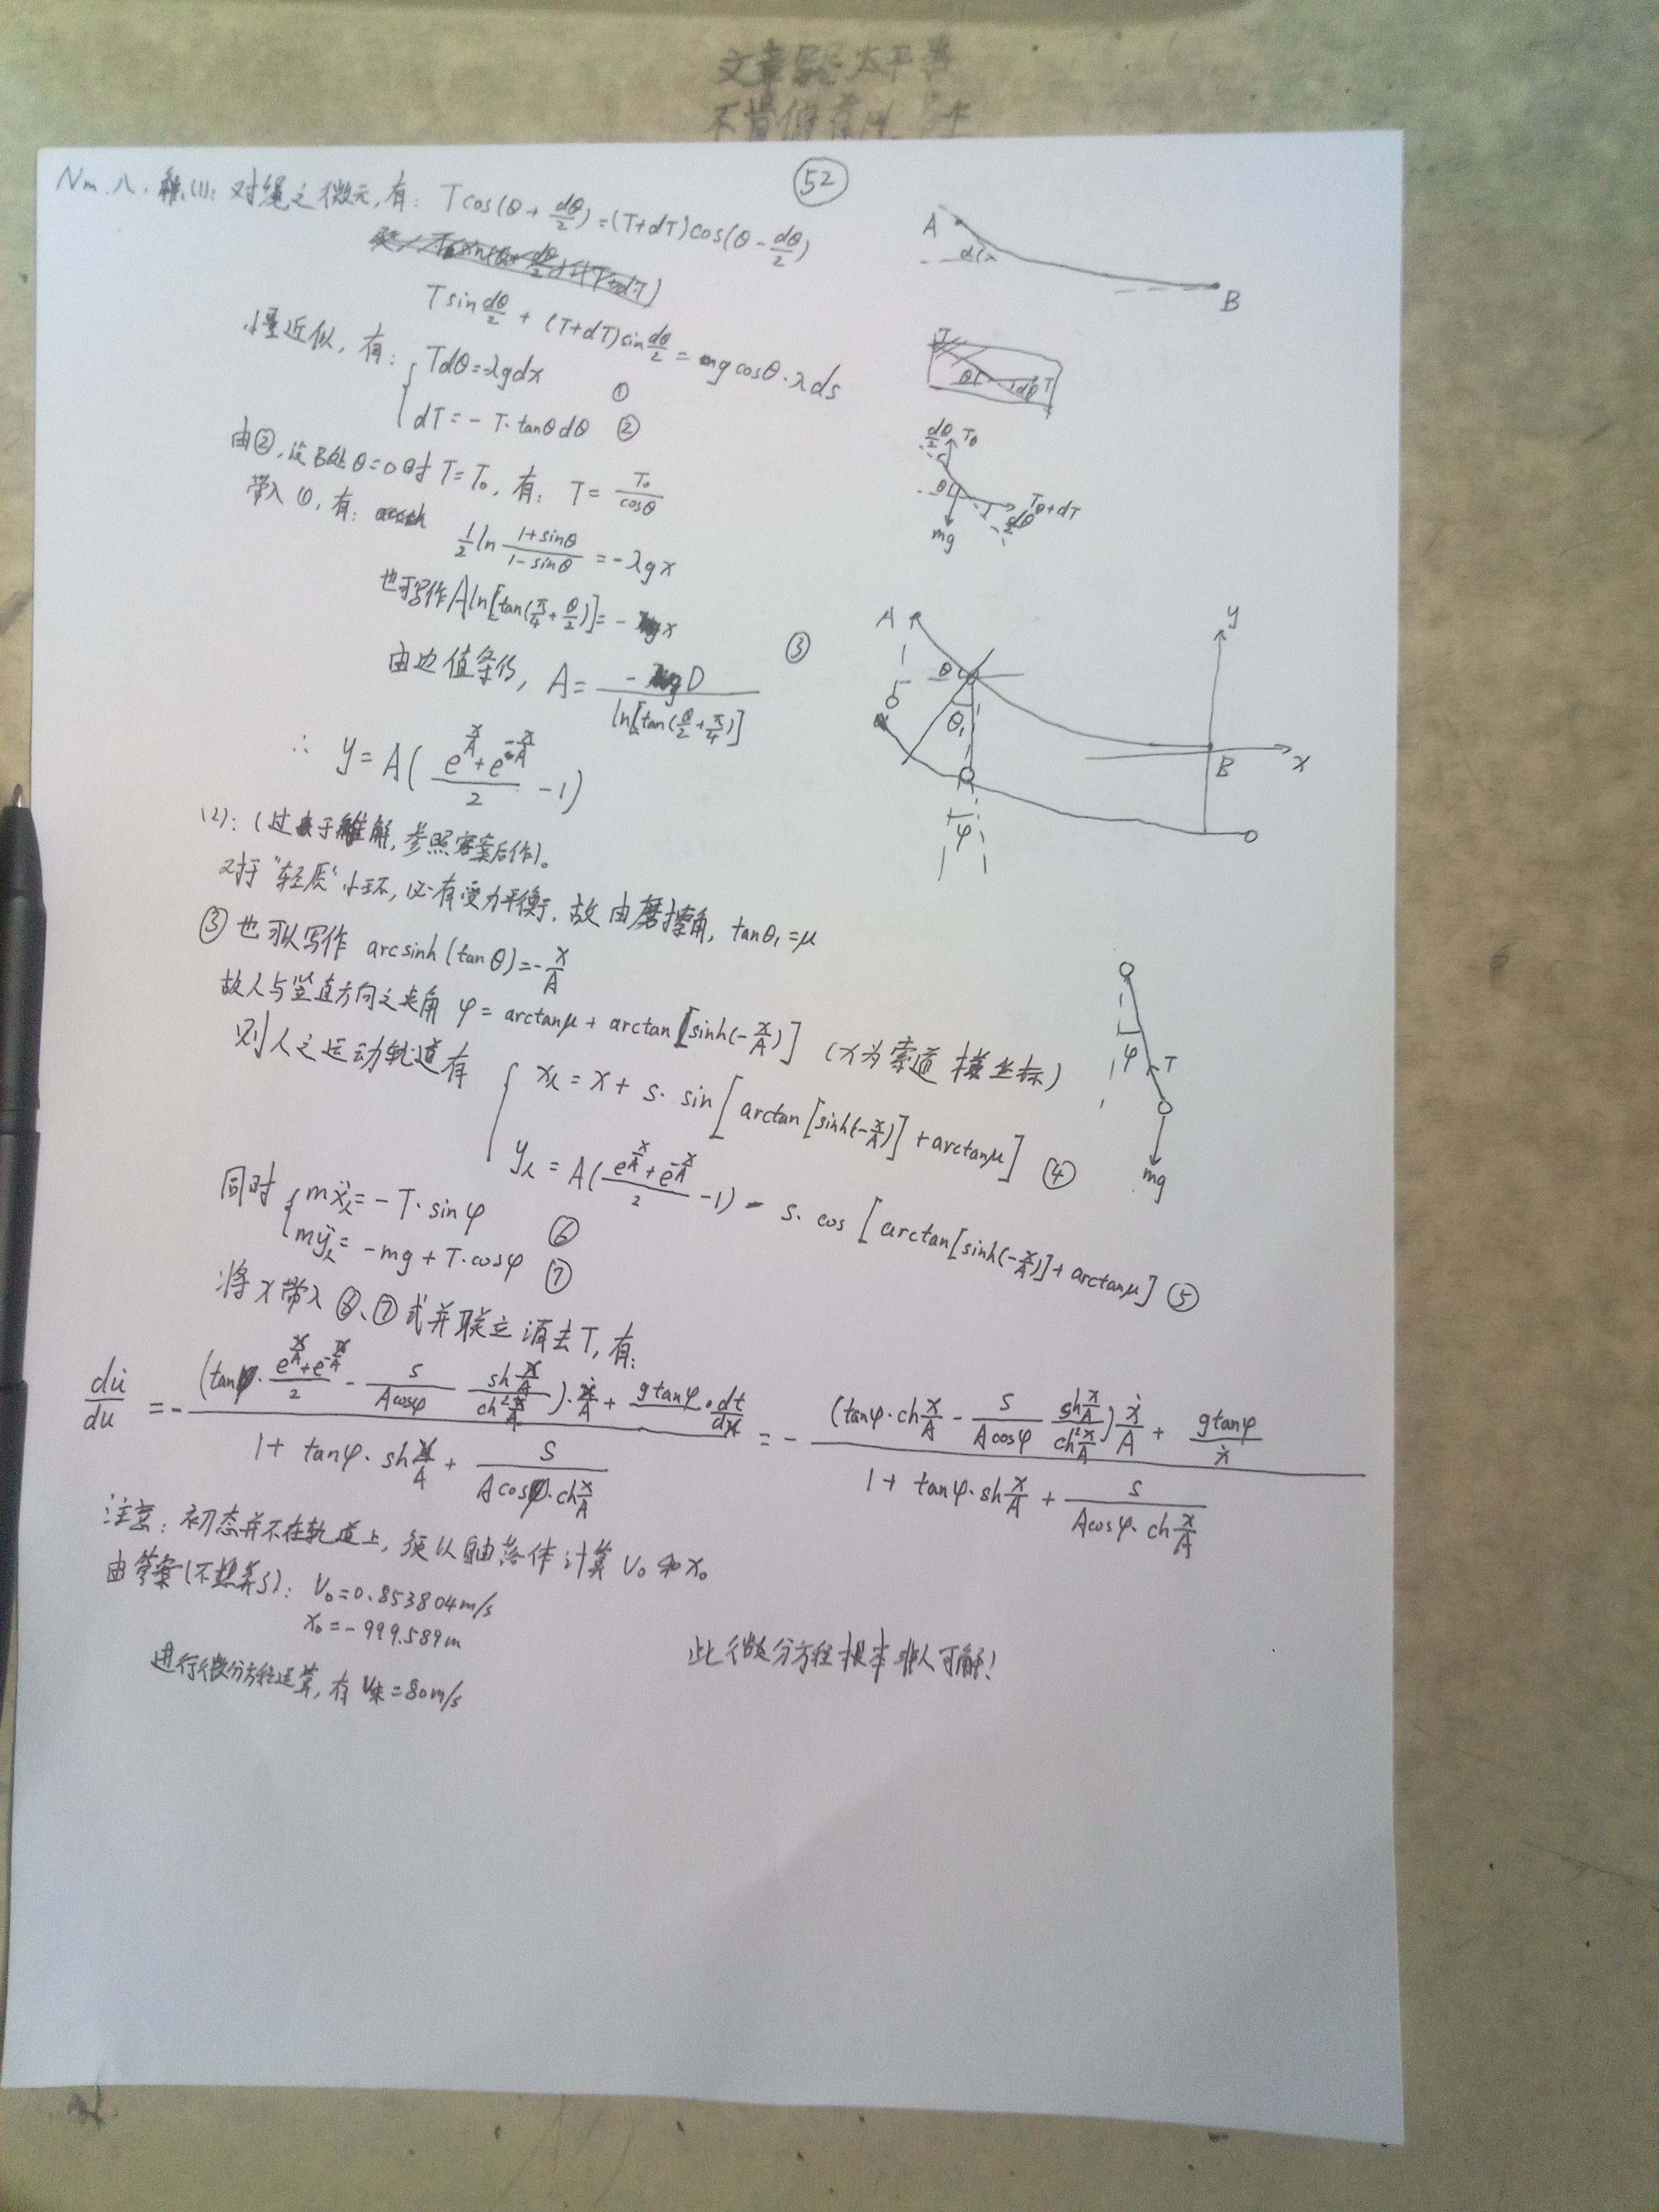 文章 太平
不肯
52
Nm.八.解.(1):对绳之微元,有: Tcos(θ+dθ/2)=(T+dT)cos(θ-dθ/2)
Tsin dθ/2 + (T+dT)sin dθ/2 = mgcosθ·λds
小量近似,有:
Tdθ=-λgdx ①
dT=-T·tanθdθ ②
由②,设B处θ=0时T=T₀,有: T=T₀/cosθ
带入①,有:
1/2 ln (1+sinθ)/(1-sinθ) = -λgx
也可写作 A ln[tan(π/4+θ/2)]= -x ③
由边值条件, A= -D/ln[tan(θ/2+π/4)]
∴ y=A((e^(x/A)+e^(-x/A))/2 -1)
(2):(过于难解,参照答案后作)。
对于"轻质"小环,必有受力平衡,故由摩擦角, tanθ₁=μ
③也可以写作 arcsinh(tanθ)=-x/A
故人与竖直方向之夹角 φ=arctanμ+arctan[sinh(-x/A)] (x为索道横坐标)
则人之运动轨道有
x人=x+s·sin[arctan[sinh(-x/A)]+arctanμ] ④
y人=A((e^(x/A)+e^(-x/A))/2 -1) - s·cos[arctan[sinh(-x/A)]+arctanμ] ⑤
同时
mẍ人=-T·sinφ ⑥
mÿ人=-mg+T·cosφ ⑦
将x带入⑥、⑦式并联立消去T,有:
du̇/du = -((tanφ·(e^(x/A)+e^(-x/A))/2 - s/(Acosφ) · sh(x/A)/ch²(x/A))·ẋ/A + gtanφ·dt/dx)/(1+tanφ·sh(x/A)+s/(Acosφ·ch(x/A))) = -((tanφ·ch(x/A) - s/(Acosφ) · sh(x/A)/ch²(x/A))ẋ/A + gtanφ/ẋ)/(1+tanφ·sh(x/A)+s/(Acosφ·ch(x/A)))
注意:初态并不在轨道上,须以自由落体计算V₀和x₀
由答案(不想算了): V₀=0.853804m/s
x₀=-999.589m
进行微分方程运算,有V末=80m/s
此微分方程根本非人可解!
A
α
B
θ
dθ
T
dθ/2
Tθ
θ
Tθ+dT
dθ/2
mg
A
y
θ
θ₁
B
x
φ
φ
T
mg